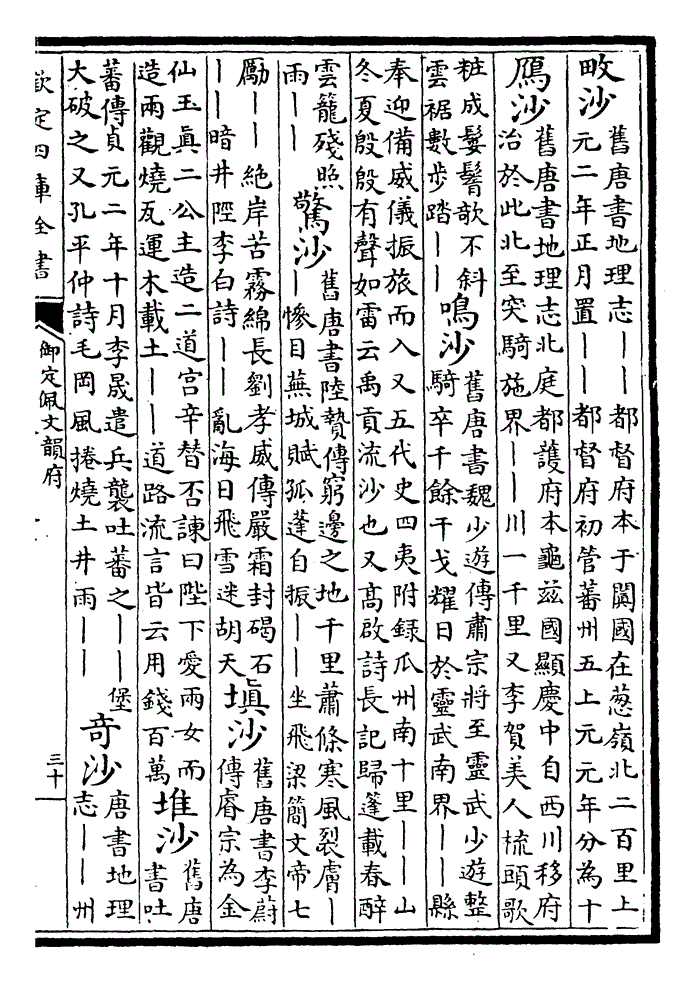 毗沙
舊唐書地理志——都督府本于闐國在葱嶺北二百里上
元二年正月置——都督府初管蕃州五上元元年分為十
鴈沙
舊唐書地理志北庭都護府本龜兹國顯慶中自西川移府
治於此北至突騎施界——川一千里又李賀美人梳頭歌
粧成鬌鬢欹不斜
雲裾數步踏——
鳴沙
舊唐書魏少遊傳肅宗將至靈武少遊整
騎卒千餘干戈耀日於靈武南界——縣
奉迎備威儀振旅而入又五代史四夷附錄瓜州南十里——山
冬夏殷殷有聲如雷云禹貢流沙也又高啟詩長記歸篷載春醉
雲籠殘照
雨——
驚沙
舊唐書陸贄傳窮邊之地千里蕭條寒風裂膚—
—慘目蕪城賦孤蓬自振——坐飛梁簡文帝七
勵——絶岸苦霧綿長劉孝威傳嚴霜封碣石
——暗井陘李白詩——亂海日飛雪迷胡天
填沙
舊唐書李蔚
傳睿宗為金
仙玉真二公主造二道宫辛替否諫曰陛下愛兩女而
造兩觀燒瓦運木載土——道路流言皆云用錢百萬
堆沙
舊唐
書吐
蕃傳貞元二年十月李晟遣兵襲吐蕃之——堡
大破之又孔平仲詩毛岡風捲燒土井雨——
奇沙
唐書地理
志——州
欽定四庫全書
御定佩文韻府
三十